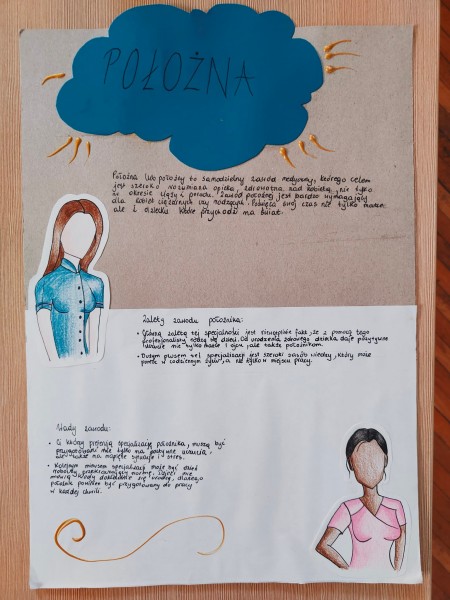 POŁOŻNA
Położna lub położny to samodzielny zawód medyczny, którego celem
jest szeroko rozumiana opieka zdrowotna nad kobietą, nie tylko
w okresie ciąży i porodu. Zawód położnej jest bardzo wymagający
dla kobiet ciężarnych czy rodzących. Poświęca swój czas nie tylko matce
ale i dziecku które przychodzi na świat.
Zalety zawodu położnika:
• Główną zaletą tej specjalności jest niewątpliwie fakt, że z pomocą tego
profesjonalisty rodzą się dzieci. Od urodzenia zdrowego dziecka daje pozytywne
nie tylko matce i ojcu, ale także położnikom.
• Dużym plusem tej specjalizacji jest szeroki zasób wiedzy, który może
pomóc w codziennym życiu, a nie tylko w miejscu pracy.
Wady zawodu:
• Ci którzy preferują specjalizację położnika, muszą być
przygotowani nie tylko na pozytywne uczucia,
ale także na napięte sytuacje i stres.
• Kolejnym minusem specjalizacji może być dzień
roboczy przekraczający normę, dzieci nie
mówią kiedy dokładnie się urodzą, dlatego
położnik powinien być przygotowany do pracy
w każdej chwili.